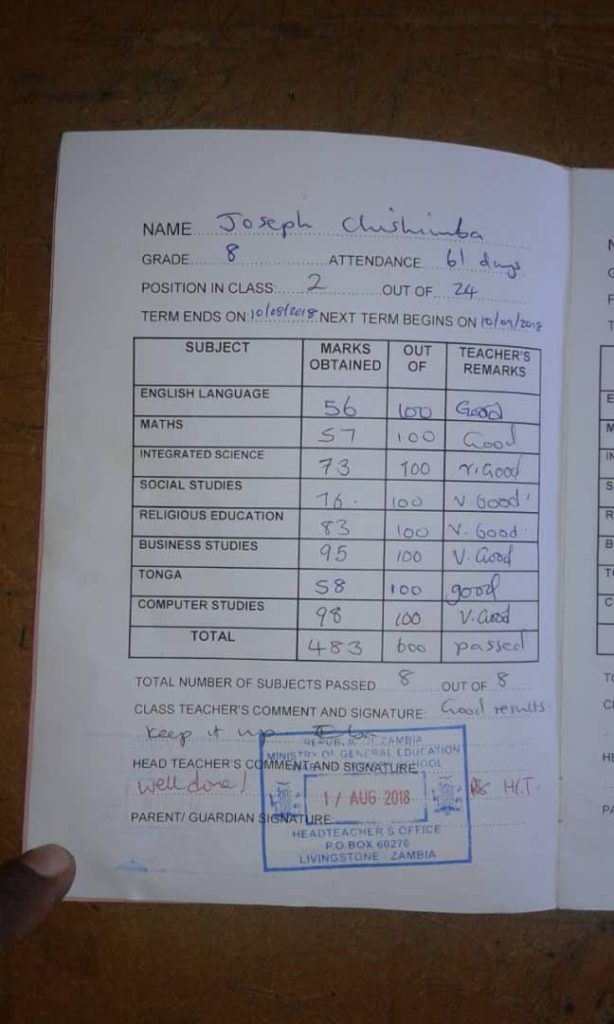 NAME Joseph Chishimba
GRADE 8 ATTENDANCE 61 days
POSITION IN CLASS: 2 OUT OF 24
TERM ENDS ON: 10/08/2018 NEXT TERM BEGINS ON 10/09/2018
SUBJECT MARKS OBTAINED OUT OF TEACHER'S REMARKS
ENGLISH LANGUAGE 56 100 Good
MATHS 57 100 Good
INTEGRATED SCIENCE 73 100 V. Good
SOCIAL STUDIES 76. 100 V. Good
RELIGIOUS EDUCATION 83 100 V. Good
BUSINESS STUDIES 95 100 V. Good
TONGA 58 100 good
COMPUTER STUDIES 98 100 V. Good
TOTAL 483 600 passed
TOTAL NUMBER OF SUBJECTS PASSED 8 OUT OF 8
CLASS TEACHER'S COMMENT AND SIGNATURE: Good results
keep it up
REPUBLIC OF ZAMBIA
MINISTRY OF GENERAL EDUCATION
HEAD TEACHER'S COMMENT AND SIGNATURE
SCHOOL
well done! H/T.
17 AUG 2018
PARENT/ GUARDIAN SIGNATURE
HEADTEACHER'S OFFICE
P.O. BOX 60270
LIVINGSTONE - ZAMBIA